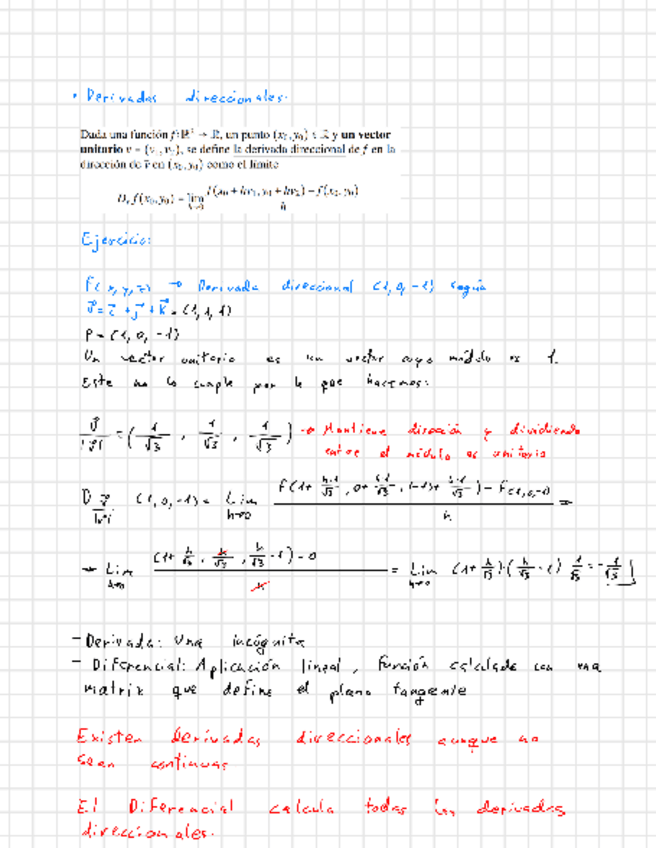 • Derivadas direccionales.
Dada una función f: ℝ² → ℝ, un punto (x₀, y₀) ∈ ℝ y un vector
unitario v = (v₁, v₂), se define la derivada direccional de f en la
dirección de v⃗ en (x₀, y₀) como el límite
Dᵥ f(x₀, y₀) = lim h→0 (f(x₀ + hv₁, y₀ + hv₂) − f(x₀, y₀)) / h
Ejercicio:
f(x, y, z) → Derivada direccional (1, 0, -1) según
v⃗ = i⃗ + j⃗ + k⃗ = (1, 1, 1)
P = (1, 0, -1)
Un vector unitario es un vector cuyo módulo es 1.
Este no lo cumple por lo que hacemos:
v⃗/|v⃗| = (1/√3, 1/√3, 1/√3) → Mantiene dirección y dividiendo
entre el módulo es unitario
D v⃗/|v⃗| (1, 0, -1) = Lim h→0 (f(1 + h·1/√3, 0 + h·1/√3, (-1) + h·1/√3) − f(1,0,-1)) / h =
= Lim h→0 ((1 + h/√3, h/√3, h/√3 - 1) - 0) / h = Lim h→0 (1 + h/√3)·(h/√3 - 1) 1/√3 = -1/√3
- Derivada: Una incógnita
- Diferencial: Aplicación lineal, función calculada con una
matrix que define el plano tangente
Existen derivadas direccionales aunque no
sean continuas
El Diferencial calcula todas las derivadas
direccionales.